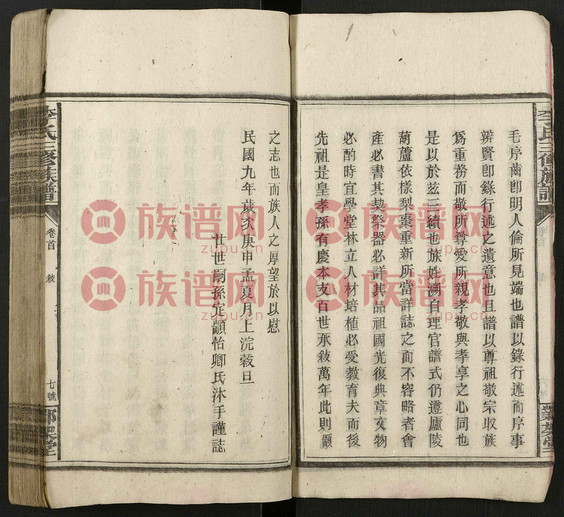 毛序齒卽明人倫所見端也譜以錄行述而序事
辨賢卽錄行述之遺意也且譜以尊祖敬宗收族
爲重務而敬所尊愛所親孝敬與孝享之心同也
是以於玆三續也族姓溯自理官譜式仍遵廬陵
葫蘆依樣梨棗重新所當詳誌之而不容略者會
產必書其契祭器必詳其品祖國光復典章文物
必酌時宜學堂林立人材培植必受教育夫而後
先祖是皇孝孫有慶本支百世承敘萬年此則顧
之志也而族人之厚望於以慰
民國九年歲次庚申孟夏月上浣穀旦
廿世嗣孫定顧怡卿氏沐手謹誌
李氏三修族譜
卷首
敘
七號
李氏三修族譜
族谱网
zupu.cn
族谱网
zupu.cn
族谱网
zupu.cn
族谱网
zupu.cn